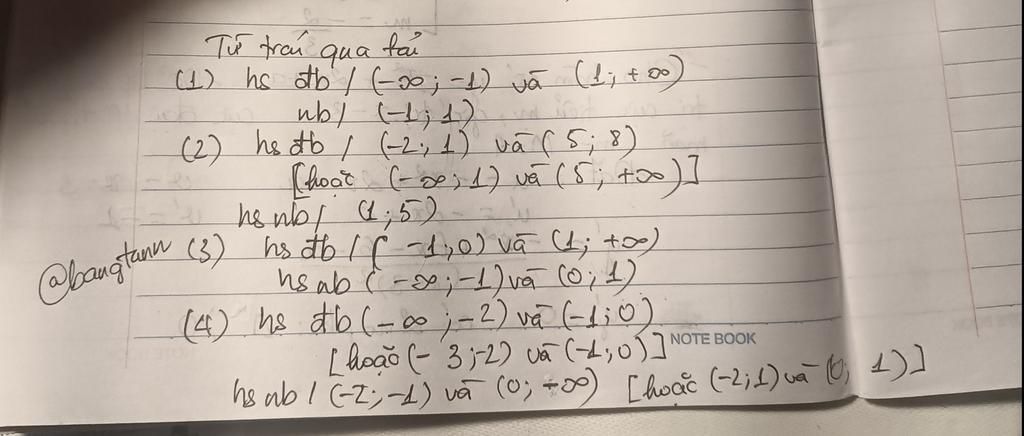 Từ trái qua fải
(1) hs đb / (-∞; -1) và (1; +∞)
nb / (-1; 1)
(2) hs đb / (-2; 1) và (5; 8)
[hoặc (-∞; 1) và (5; +∞)]
hs nb / (1; 5)
@bangtann (3) hs đb / (-1; 0) và (1; +∞)
hs nb (-∞; -1) và (0; 1)
(4) hs đb (-∞; -2) và (-1; 0)
NOTE BOOK
[hoặc (-3; -2) và (-1; 0)]
hs nb / (-2; -1) và (0; +∞) [hoặc (-2; 1) và (0; 1)]